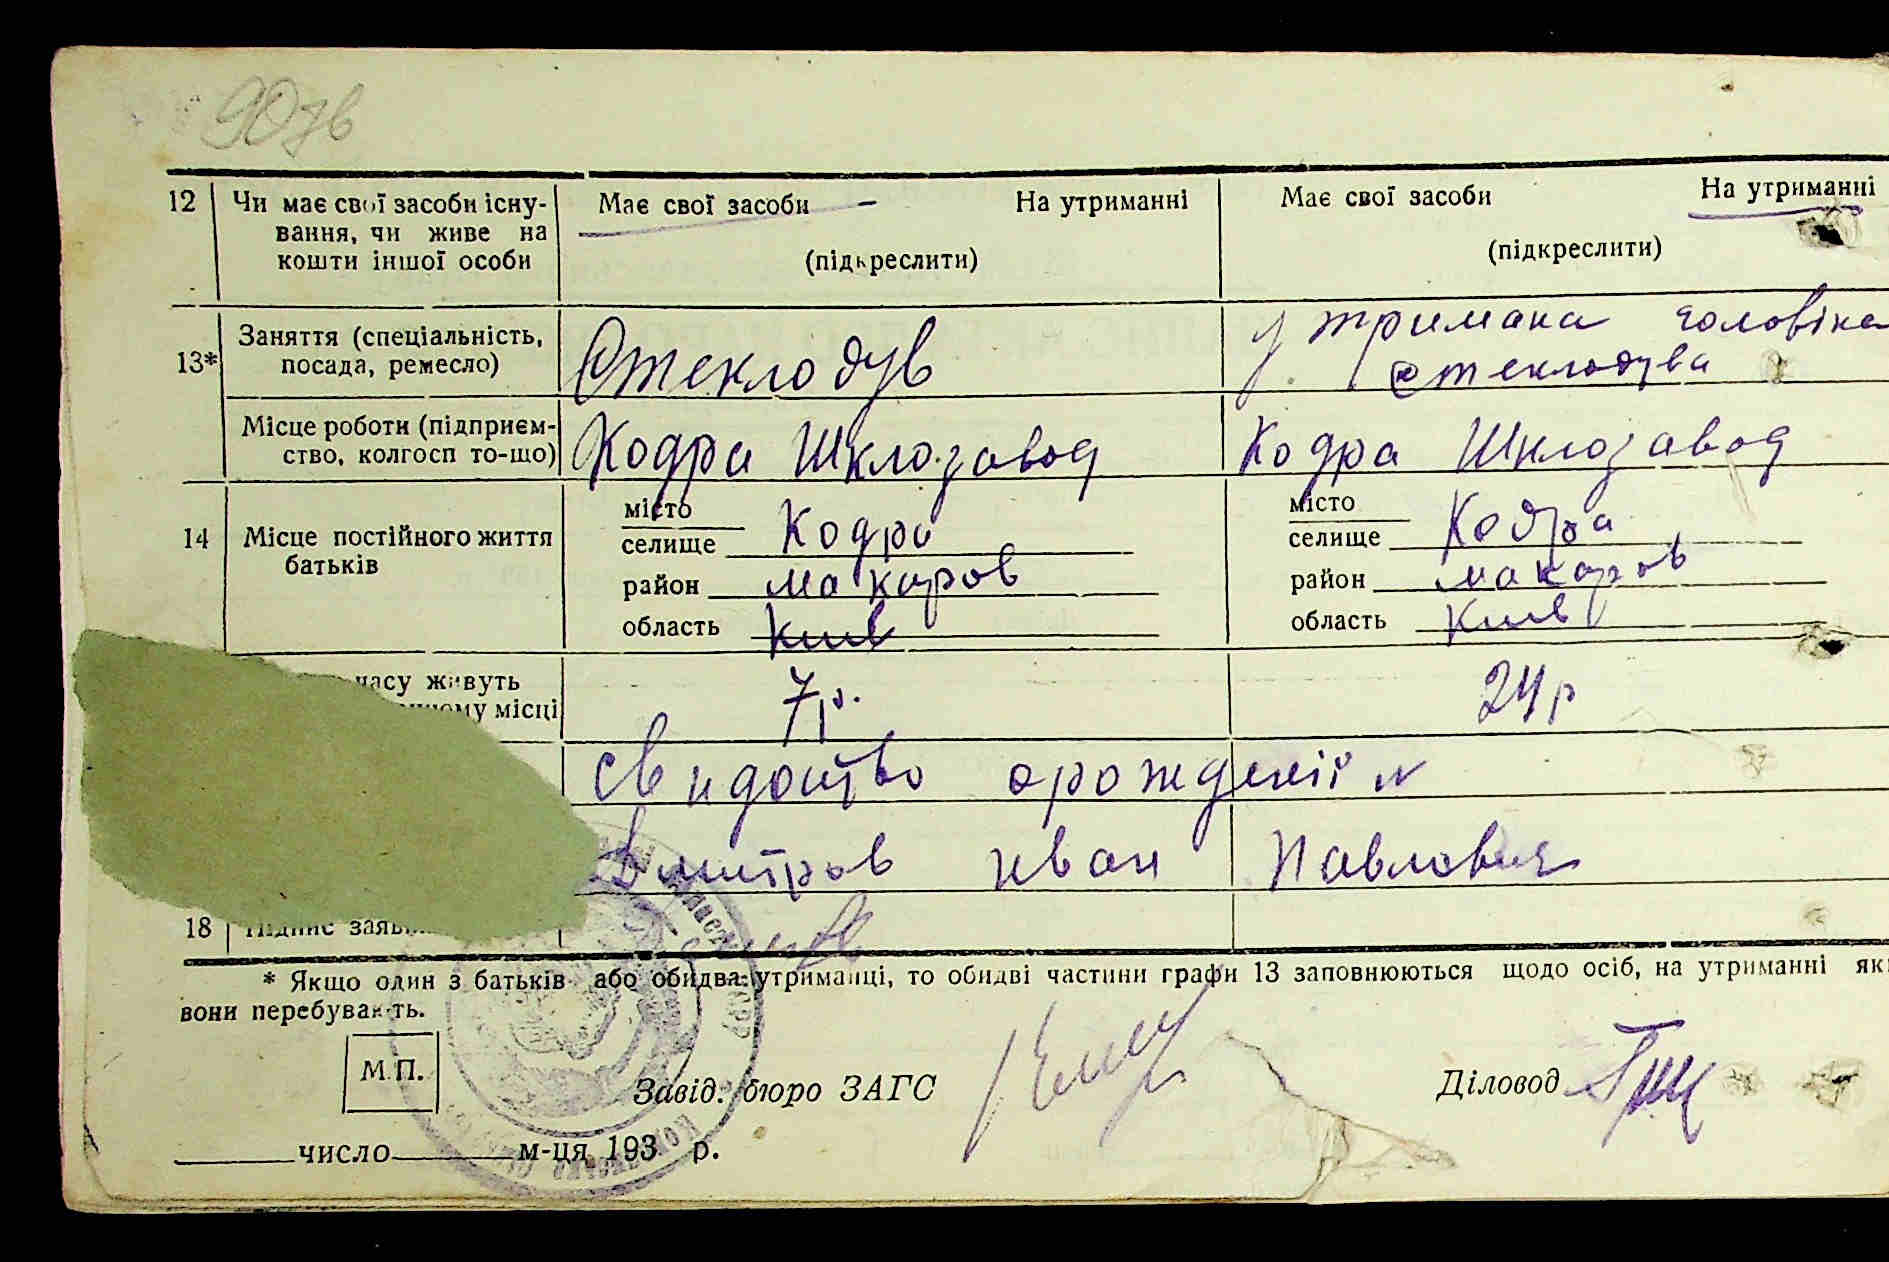 907в
12 Чи має свої засоби існу- Має свої засоби На утриманні Має свої засоби На утриманні
вання, чи живе на
кошти іншої особи (підкреслити) (підкреслити)
13* Заняття (спеціальність, посада, ремесло) Стеклодув утримана чоловіка
стеклодува
Місце роботи (підприєм- Кодра Шклозавод Кодра Шклозавод
ство, колгосп то-що)
14 Місце постійного життя батьків місто місто
селище Кодра селище Кодра
район Макаров район Макаров
область Киів область Киів
часу живуть 7 р. 24 р
місці
свидоцтво орожденіі №
Дмитров Иван Павлович
18 Підпис
* Якщо один з батьків або обидва утриманці, то обидві частини графи 13 заповнюються щодо осіб, на утриманні як
вони перебувають.
М.П. Завід. бюро ЗАГС Діловод
число м-ця 193 р.